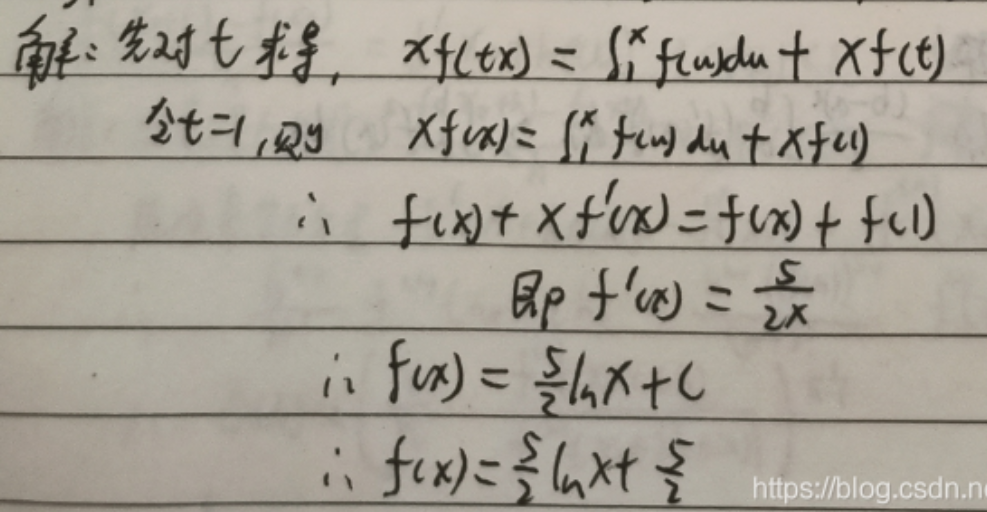 解：先对t求导， xf(tx) = ∫₁ˣ f(u)du + xf(t)
令t=1，则 xf(x) = ∫₁ˣ f(u)du + xf(1)
∴ f(x) + xf'(x) = f(x) + f(1)
即 f'(x) = 5/2x
∴ f(x) = 5/2 lnx + C
∴ f(x) = 5/2 lnx + 5/2
https://blog.csdn.ne